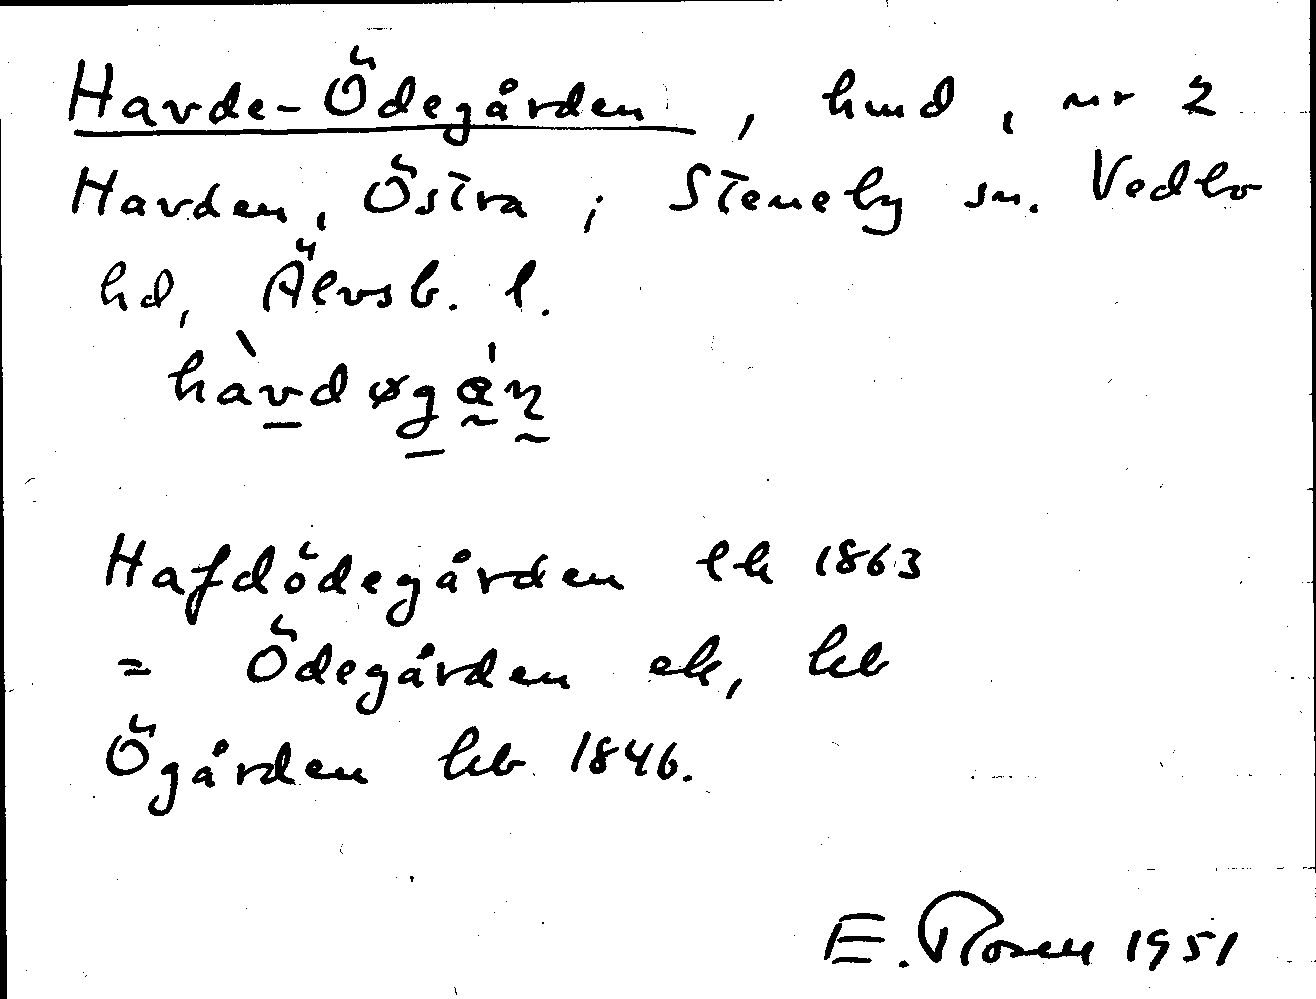 Havde-Ödegården, hmd, nr 2
Havden, Östra i Steneby sn. Vedbo
hd, Älvsb. l.
hàvdøgá̰n̰
Hafdödegården ek 1863
= Ödegården ek, kb
Ögården kb 1846.
E. Rosell 1951